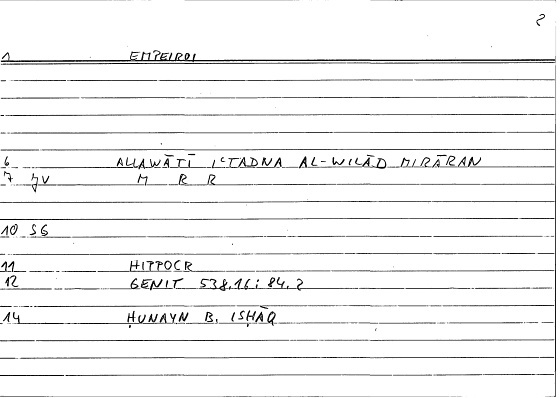 2
1 EMPEIROI
6 ALLAWĀTĪ IʿTADNA AL-WILĀD MIRĀRAN
7 JV M R R
10 SG
11 HIPPOCR
12 GENIT 538.16: 84.2
14 ḤUNAYN B. ISḤĀQ